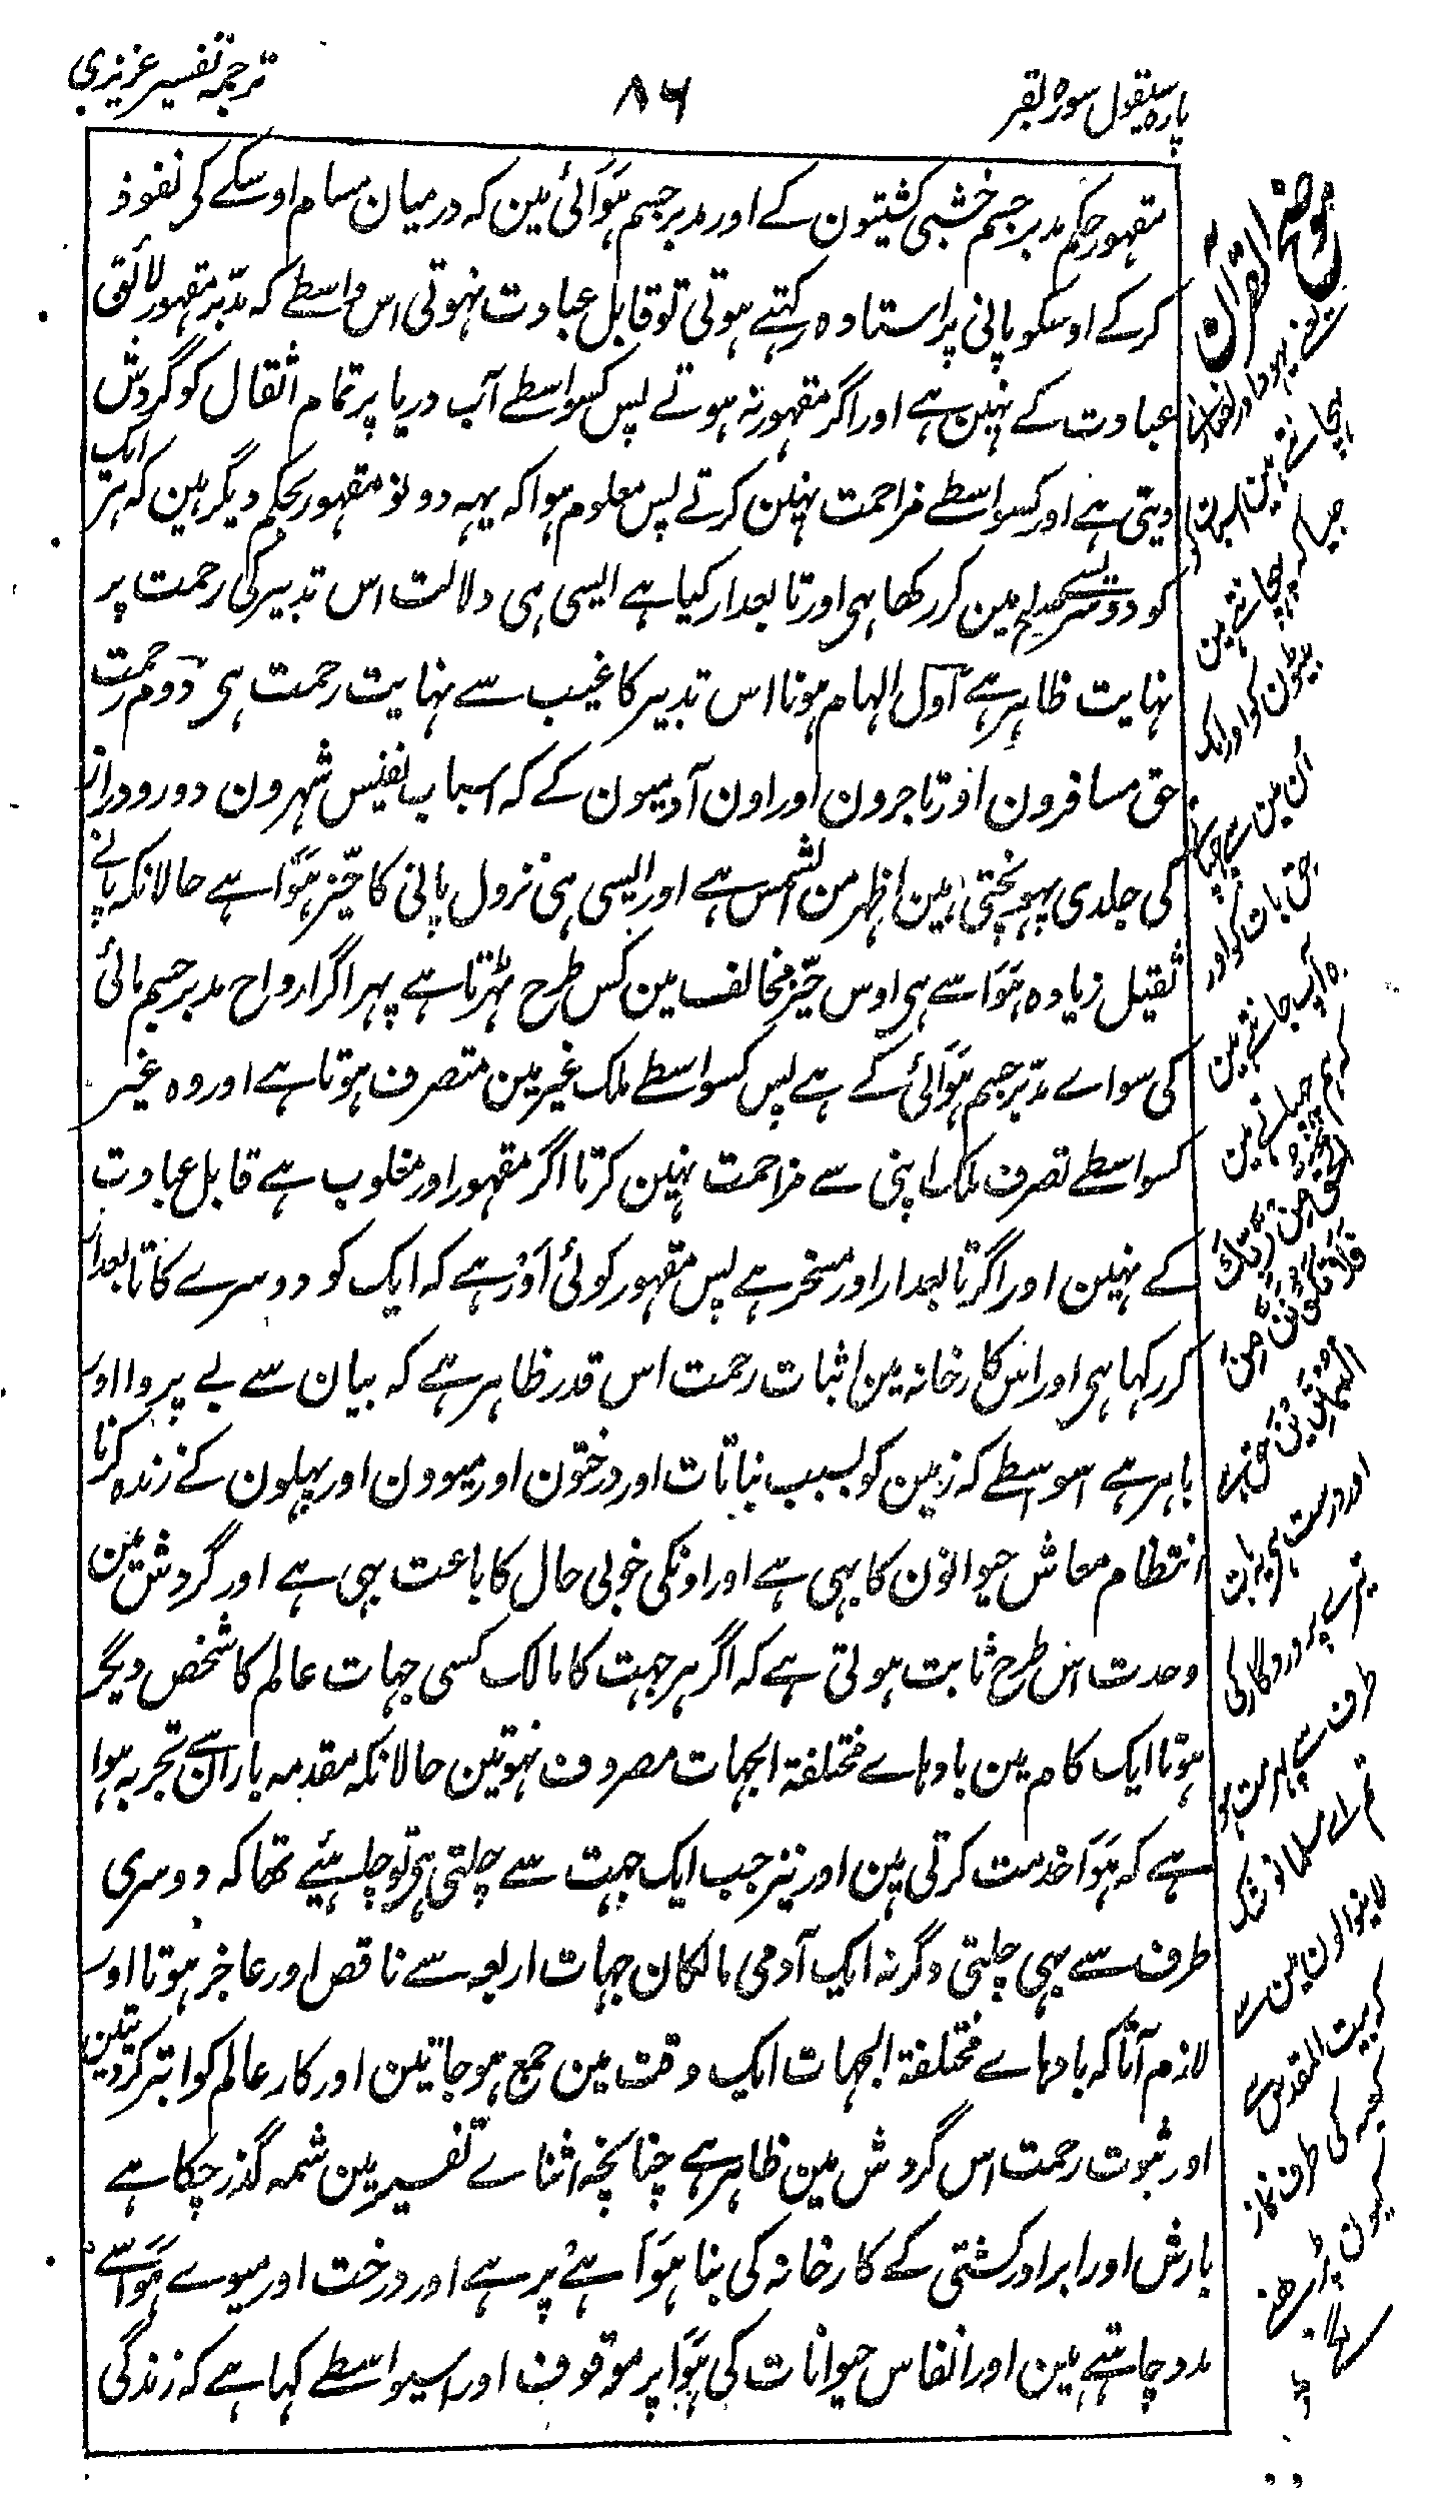 پارہ سیقول سورہ بقر
۸۶
ترجمہ تفسیر عزیزی
مقہور حکم مدبر جسم خشبی کشتیون کے اور مدبر جسم ہوائی مین کہ درمیان مسام اوسکے کی نفوذ
کرکے اوسکو پانی پر استاوہ رکہتے ہوتی تو قابل عبادت نہوتی اس واسطے کہ مدبر مقہور لائق
عبادت کے نہین ہے اور اگر مقہور نہ ہوتے پس کسواسطے آب دریا پر تمام اثقال کو گردش
دیتی ہے اور کسواسطے مزاحمت نہین کرتے پس معلوم ہوا کہ یہہ دونو مقہور بحکم دیگر ہین کہ ہر ایک
کو دوسرے مین کر رکھا ہی اور تابعدار کیا ہے ایسی ہی دلالت اس تدبیر کی رحمت پر
نہایت ظاہر ہے اول الہام ہونا اس تدبیر کا غیب سے نہایت رحمت ہی دوم رحمت
حق مسافرون اور تاجرون اور اون آدمیون کے کہ اسباب نفیس شہرون دور و دراز
کی جلدی پہونچتی ہین اظہر من الشمس ہے اور ایسی ہی نزول پانی کا حیّز ہوا ہے حالانکہ پانے
ثقیل زیادہ ہوا سے ہی اوس حیّز مخالف مین کس طرح ٹہرتا ہے پہر اگر ارواح مدبر جسم مائی
کی سواے مدبّر جسم ہوائی کے ہے پس کسواسطے ملک غیر مین متصرف ہوتا ہے اور وہ غیر
کسواسطے تصرف ملک اپنی سے مزاحمت نہین کرتا اگر مقہور اور مغلوب ہے قابل عبادت
کے نہین اور اگر تابعدار اور مسخر ہے پس مقہور کوئی اَوْر ہے کہ ایک کو دوسرے کا تابعدار
کر رکہا ہی اور اس کارخانہ مین اثبات رحمت اس قدر ظاہر ہے کہ بیان سے بے پروا اور
باہر ہے اسواسطے کہ زمین کو بسبب نباتات اور درختون اور میوون اور پہلون کے زندہ کرنا
انتظام معاش حیوانون کا بہی ہے اور اونکی خوبی حال کا باعث بہی ہے اور گردش مین
وحدت اس طرح ثابت ہوتی ہے کہ اگر ہر جہت کا مالک کسی جہات عالم کا شخص دیگر
ہوتا ایک کام مین بادہاے مختلفۃ الجہات مصروف نہوتین حالانکہ مقدمہ باران سے تجربہ ہوا
ہے کہ ہوا خدمت کرتی ہین اور نیز جب ایک جہت سے چلتی ہی تو چاہئیے تھا کہ دوسری
طرف سے بہی چلتی وگرنہ ایک آدمی مالکان جہات اربعہ سے ناقص اور عاجز ہوتا اور
لازم آتا کہ بادہاے مختلفۃ الجہات ایک وقت مین جمع ہو جاتین اور کار عالم کو ابتر کر دیتین
اور ثبوت رحمت اس گردش مین ظاہر ہے چنانچہ اثنائے تفسیر مین شمہ گذر چکا ہے
بارش اور ابر اور کشتی کے کارخانہ کی بنا ہوا ہے پر ہے اور درخت اور میوے ہوا سے
مدد چاہتے ہین اور انفاس حیوانات کی ہوا پر موقوف اور اسیواسطے کہا ہے کہ زندگی
موضح القران
یعنے یہود اور نصارا
پہچانتے ہین
جیسا کہ پہچانتے ہین
بیٹون کو اور ایک
ان مین سے چہپاتے
حق بات کو اور
وہ آپ جانتے ہین
الحق من ربک
فلا تکونن من
الممترین
اور درست ہی یہ بات
تیرے پروردگار کی
طرف سے
تم اے مسلمانو شک
لانیوالون مین سے
کہ بیت المقدس سے
کعبہ کی طرف نماز
کیون پڑھنے
لگے